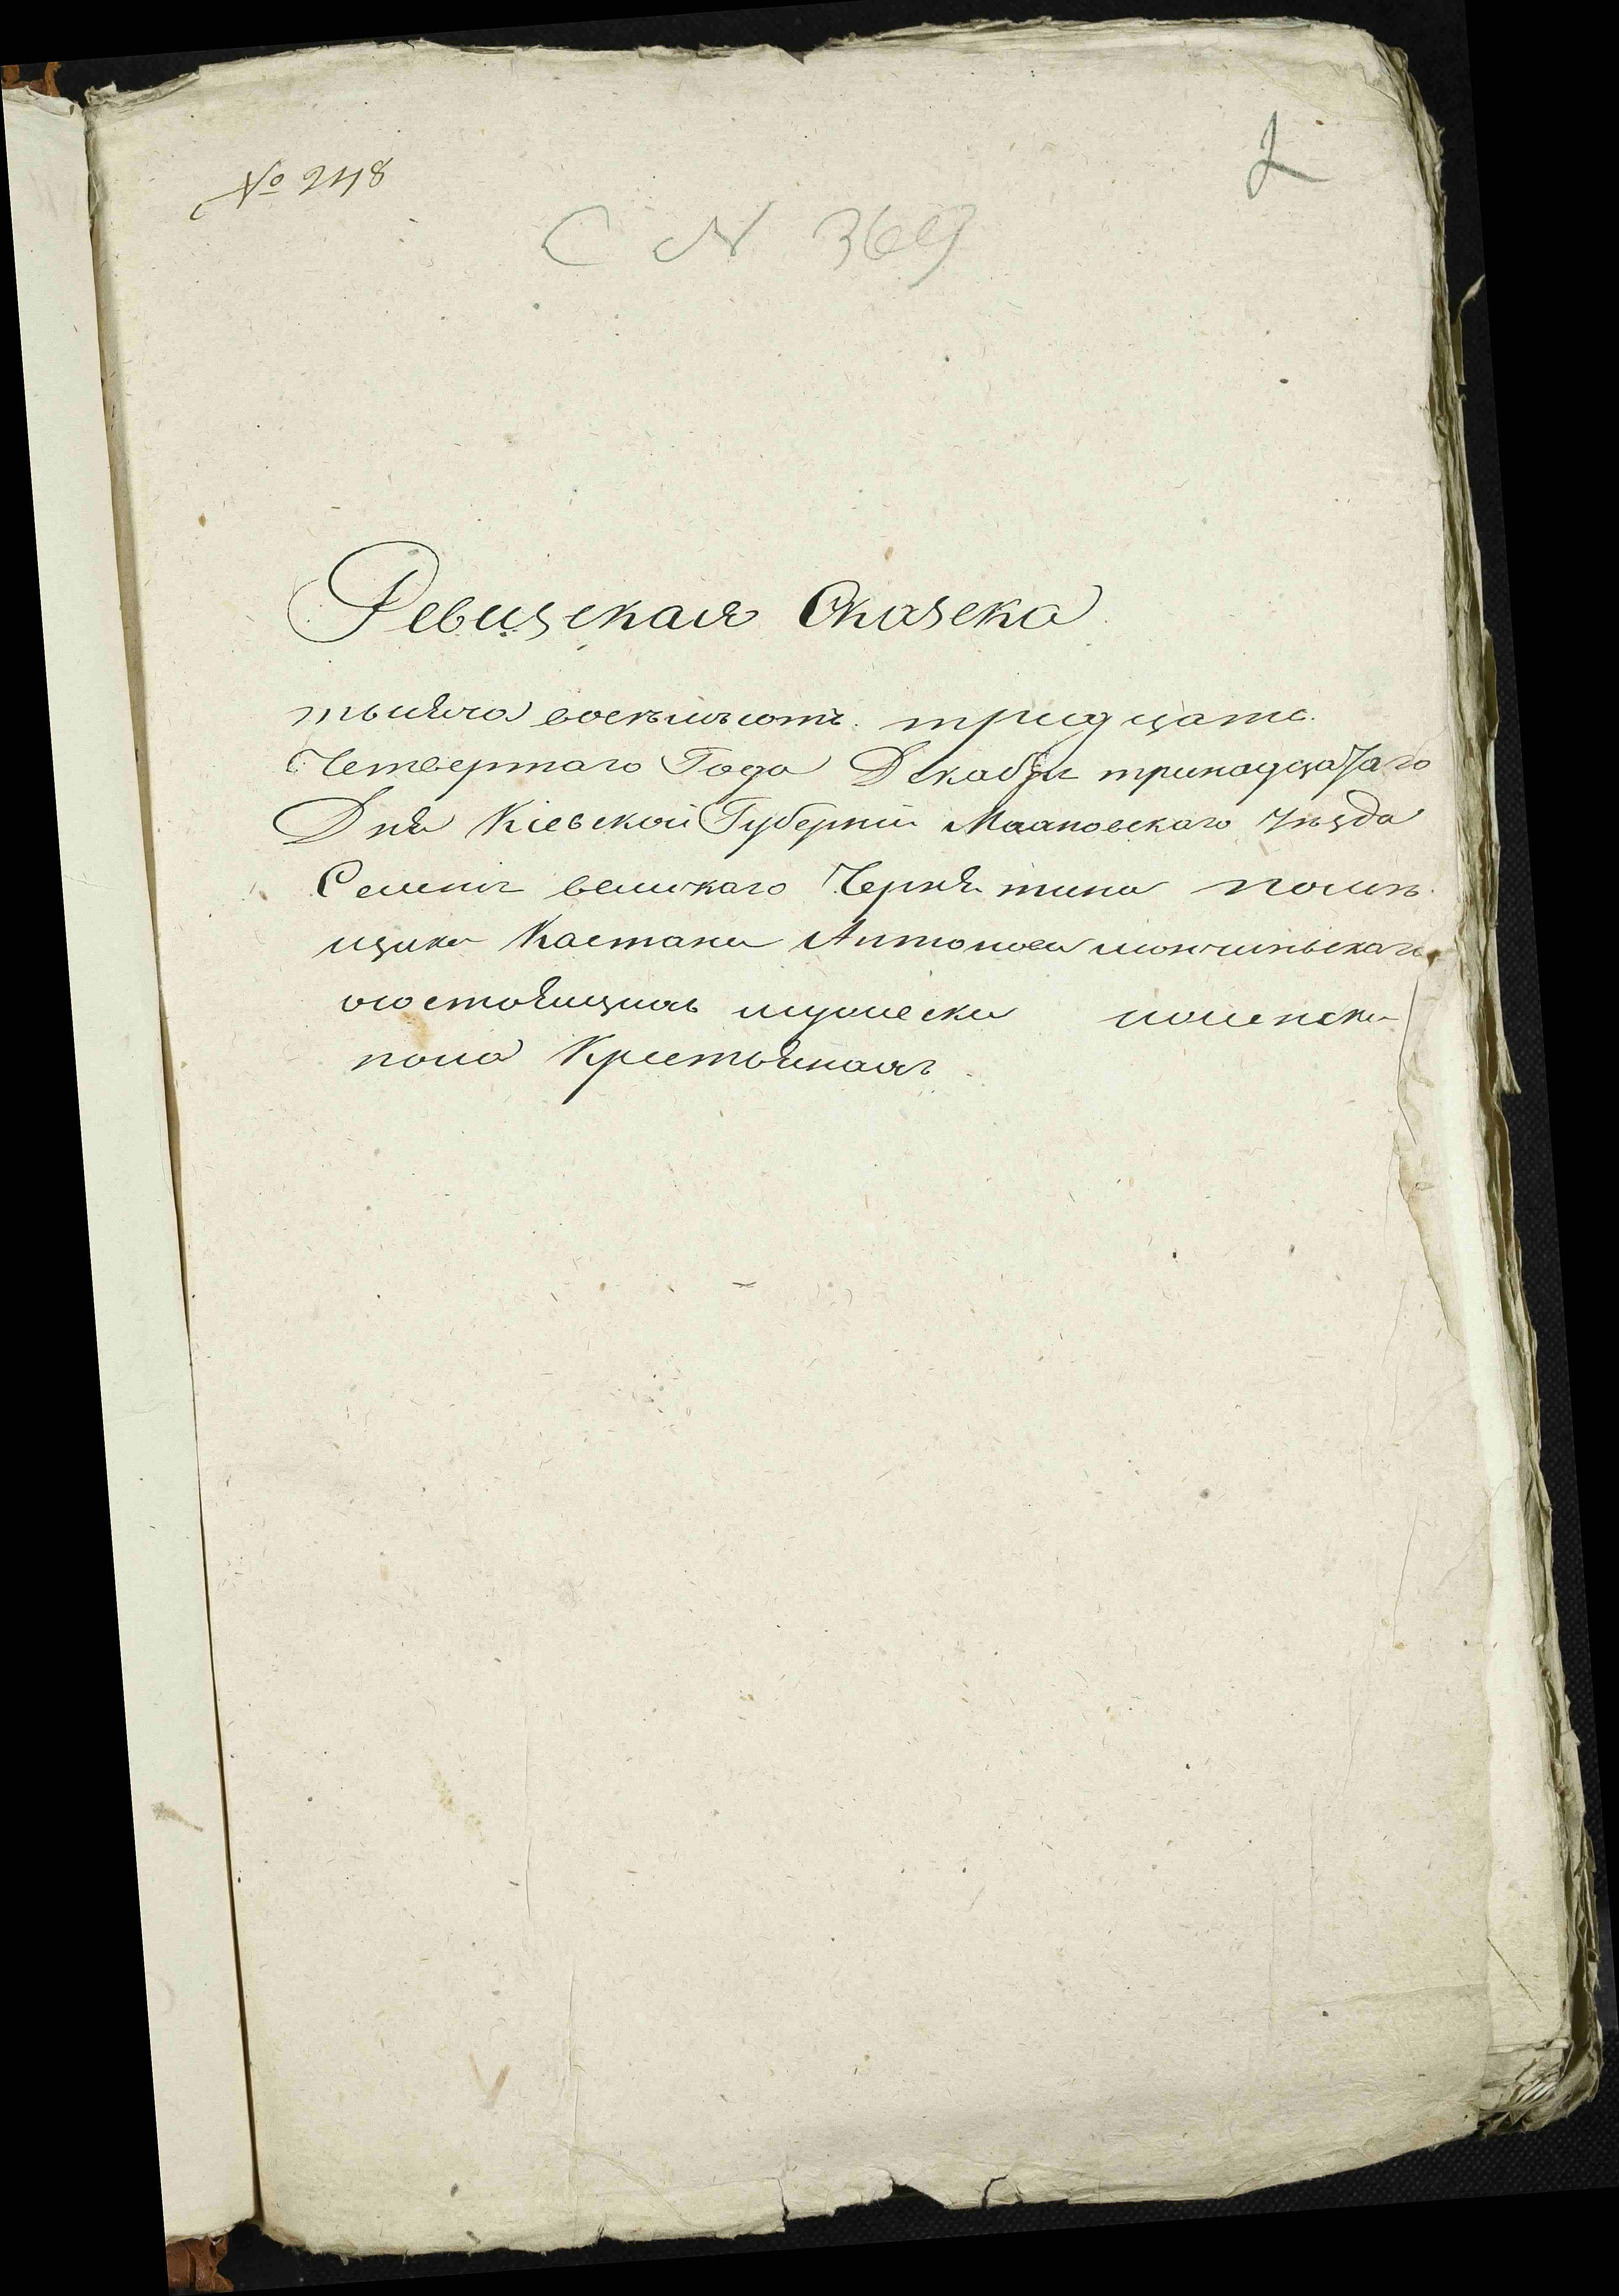 № 248
2
С N 369
Ревизская Сказска
тысяча восемьсотъ тридцать
Четвертаго Года Декабря тринадцатаго
Дня Кіевской Губерніи Махновскаго Уѣзда
Селенія великаго Чернятина помѣ
щика Каетана Антонова
о состоящихъ мужеска и женска
пола Крестьянахъ